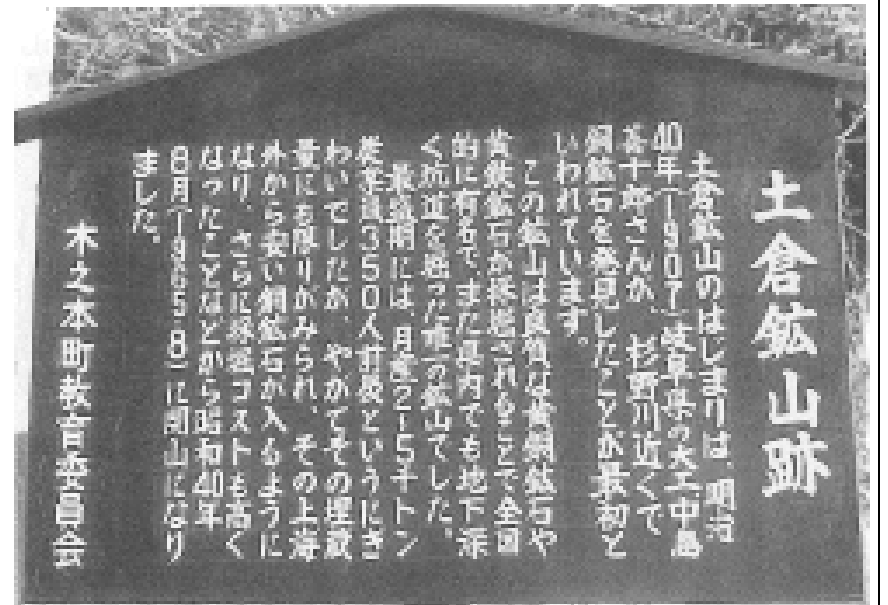 土倉鉱山跡
土倉鉱山のはじまりは、明治
40年(1907)岐阜県の大工中島
喜十郎さんが、杉野川近くで
銅鉱石を発見したことが最初と
いわれています。
この鉱山は良質な黄銅鉱石や
黄鉄鉱石が採掘されることで全国
的に有名で、また県内でも地下深
く坑道を掘った唯一の鉱山でした。
最盛期には、月産2~5千トン
従業員350人前後というにぎ
わいでしたが、やがてその埋蔵
量にも限りがみられ、その上海
外から安い銅鉱石が入るように
なり、さらに採掘コストも高く
なったことなどから昭和40年
8月(1965.8)に閉山になり
ました。
木之本町教育委員会